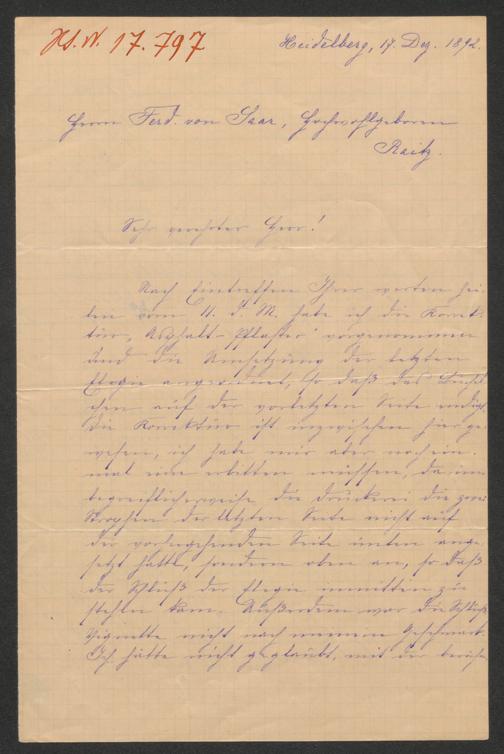 H.I.N. 17.797
Heidelberg, 17. Dez. 1892.
Herrn Ferd. von Saar, Hochwohlgeboren
Raitz.
Sehr verehrter Herr!
Nach Eintreffen Ihrer werten Zei-
len vom 11. d. M. habe ich die Korrek-
tur „Asphalt-Pflaster" vorgenommen
und die Umsetzung der letzten
Elegie angeordnet, so daß das Büchel-
chen auf der vorletzten Seite endigt.
Die Korrektur ist inzwischen hier ge-
wesen, ich habe mir aber noch ein-
mal eine erbitten müssen, da un-
begreiflicherweise die Druckerei die zwei
Strophen der letzten Seite nicht auf
der vorhergehenden Seite unten ange-
setzt hatte, sondern oben an, so daß
der Schluß der Elegie inmitten zu
stehen kam. Außerdem war die Schluß-
Vignette nicht nach meinem Geschmack.
Ich hätte nicht geglaubt, mit der berühm-